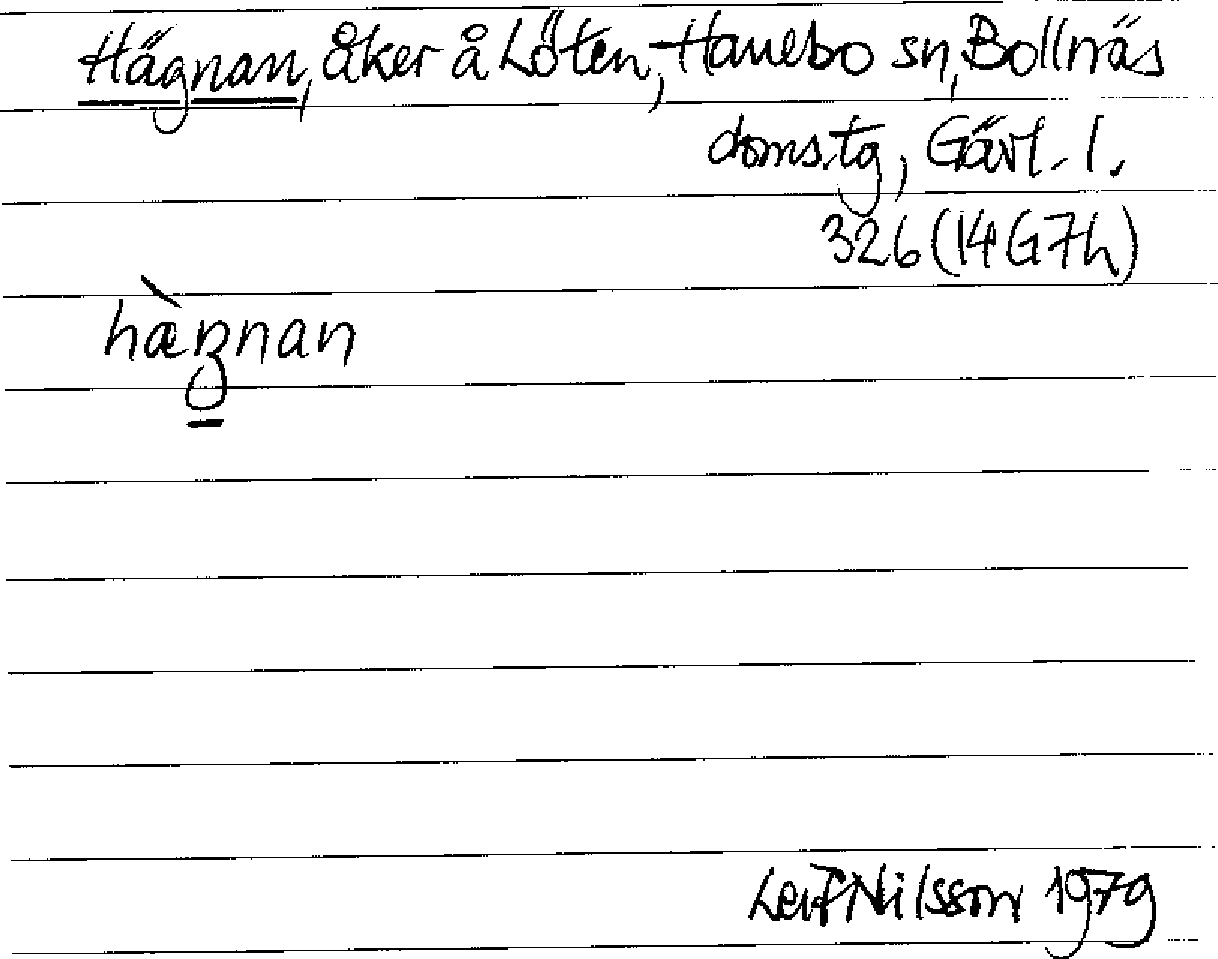 Hägnan, åker å Löten, Hanebo sn, Bollnäs
doms.tg, Gävl. l.
326 (14G7h)
hæ̀ŋnan
Leif Nilsson 1979